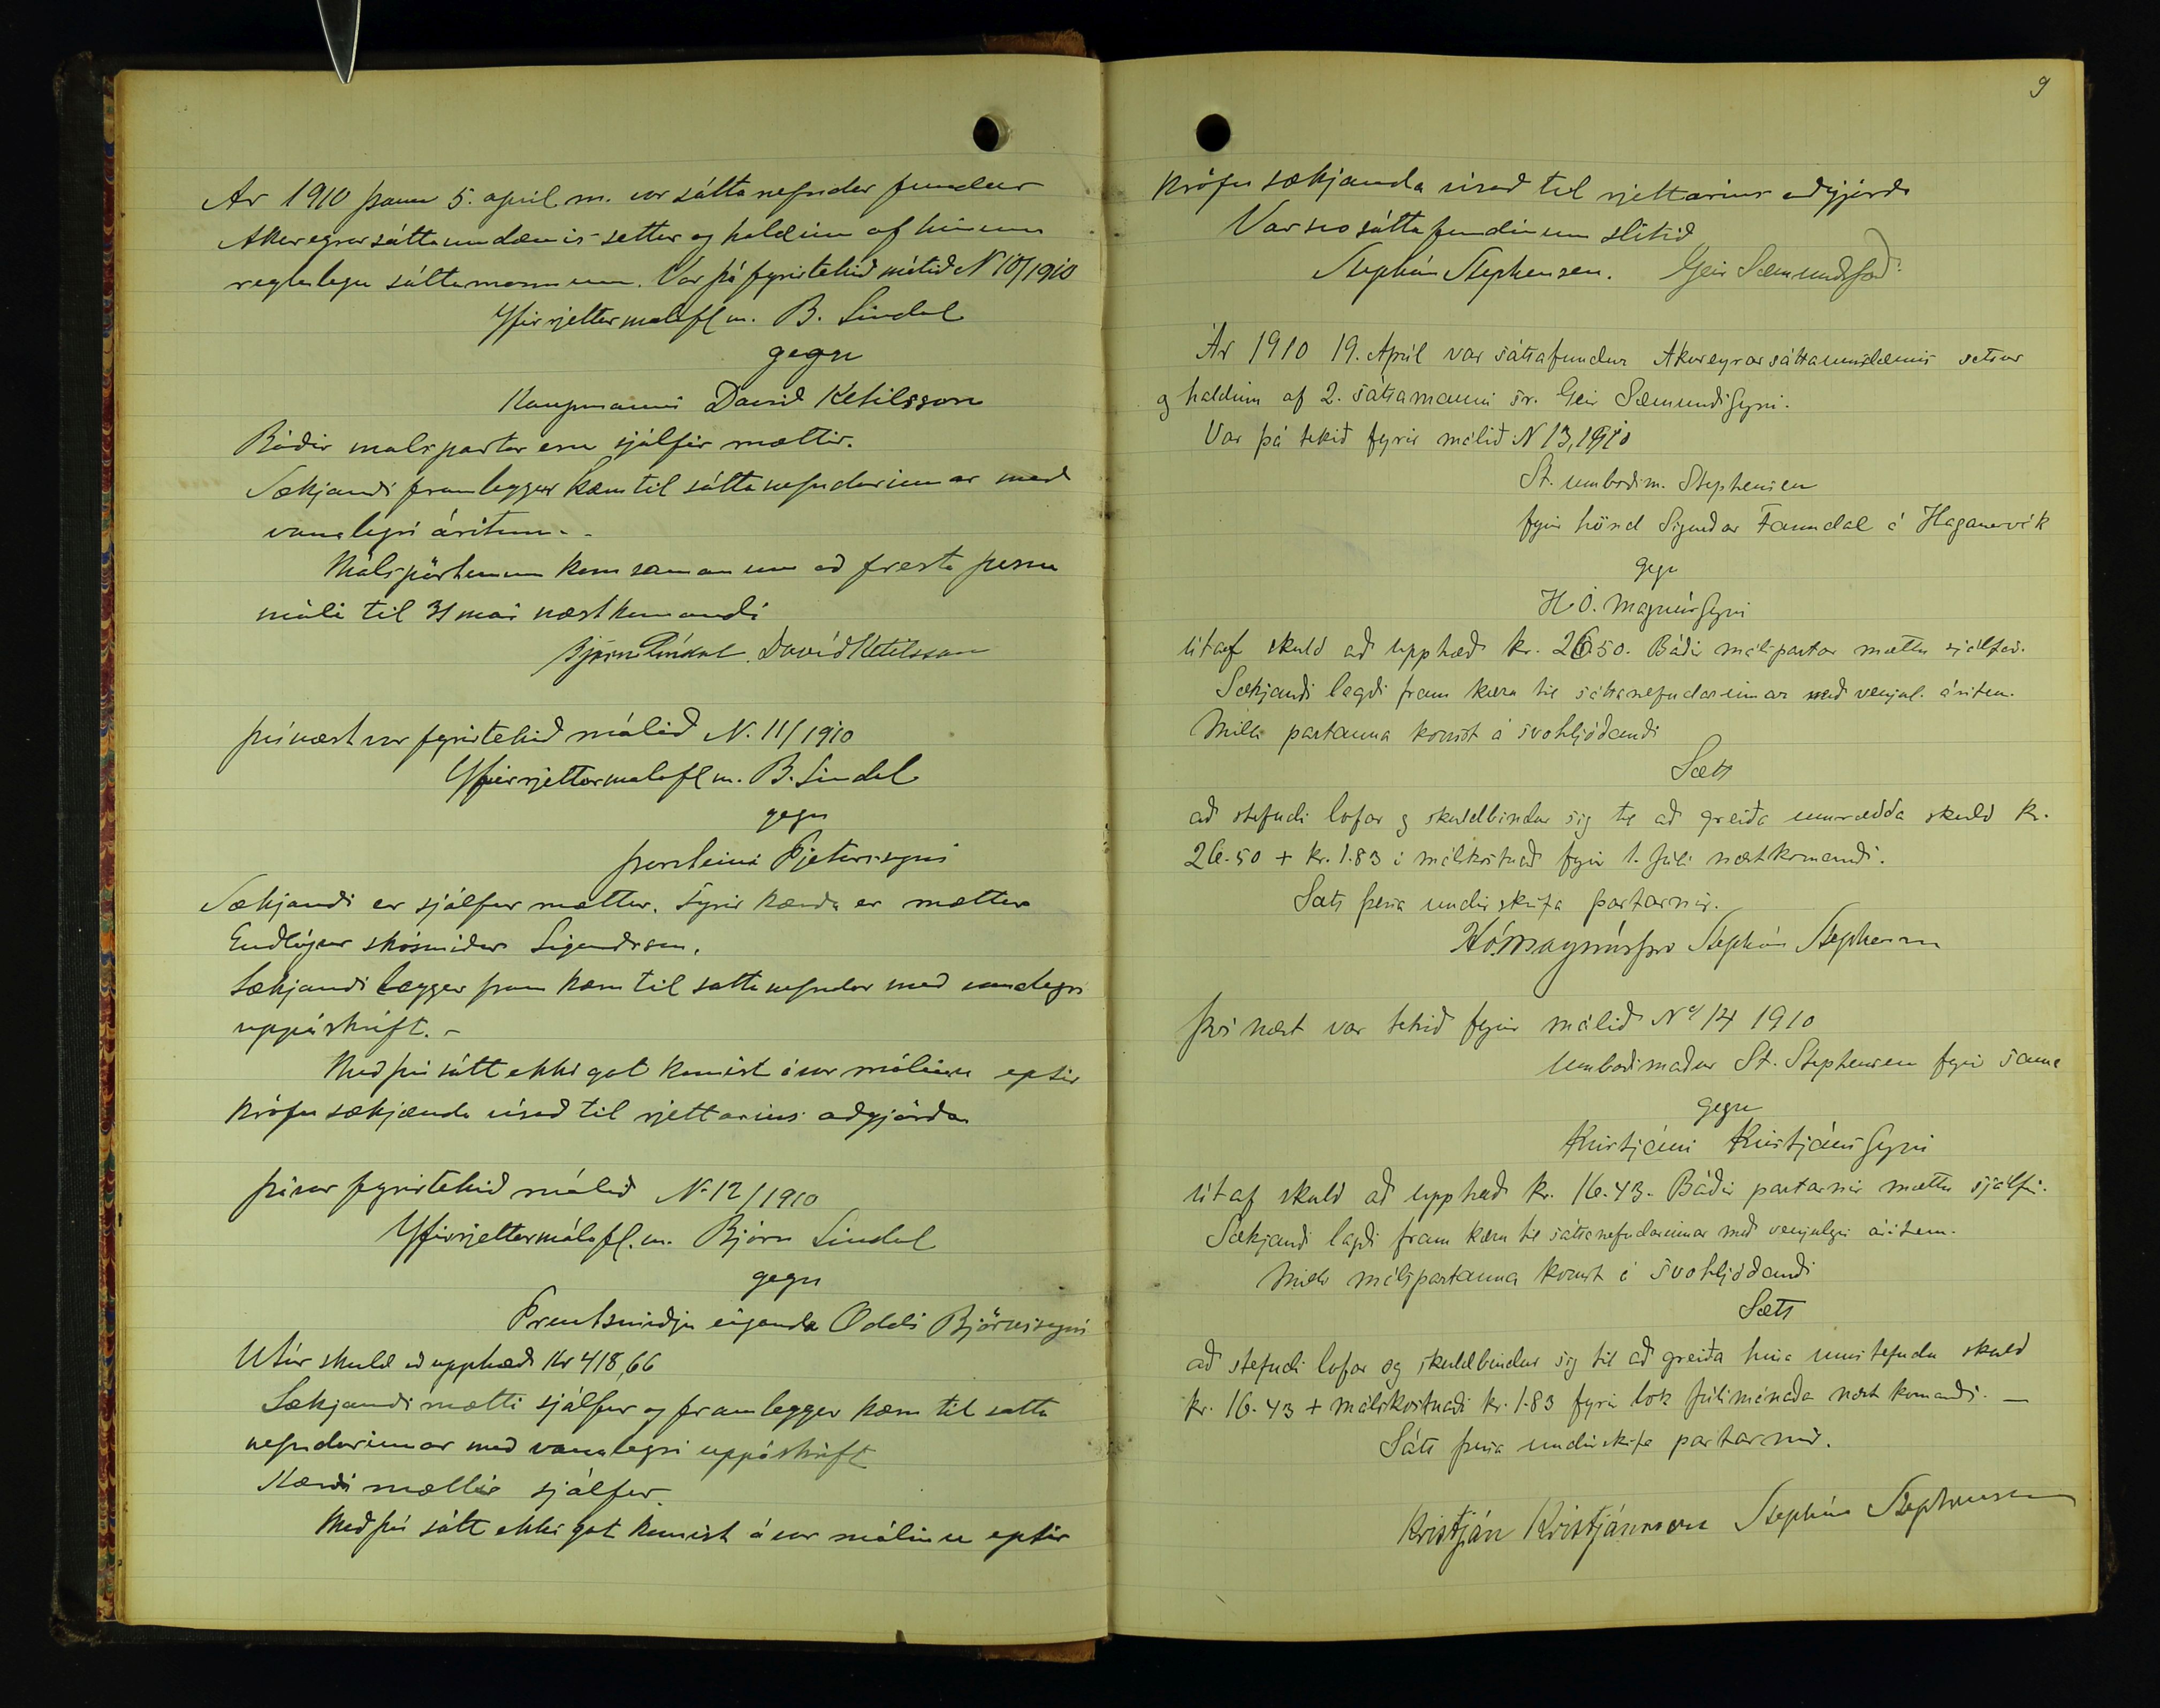 Ar 1910 þann 5. april m. var sáttanefndar fundur
Akureyrar sáttaumdæmis settur og haldinn af hinum
reglulegu sáttamönnum. Var þá fyrirtekið málið N 10/1910
Yfirrjettarmálafl m. B. Lindal
gegn
Kaupmanni David Ketilsson
Báðir malspartar eru sjálfir mættir.
Sækjandi framleggur kæru til sáttanefndarinnar með
vanalegri áritun. -
Málspörtunum kom saman um að fresta þessu
máli til 31 mai næstkomandi
Björn Líndal. Davíð Ketilsson
þvínæst var fyrirtekið málið N. 11/1910
Yfirrjettarmalafl m. B. Lindal
gegn
þorsteini Pjeturssyni
Sækjandi er sjálfur mættur. Fyrir kærða er mættur
Guðlögur skósmiður Sigurdsson.
Sækjandi leggur fram kæru til sattanefndar með vanalegri
uppáskrift. -
Með því sátt ekki gat komist á var málinu eptir
kröfu sækjanda vísað til rjettarins aðgjörða
þá var fyrirtekið málið N. 12/1910
Yfirrjettarmálafl. m. Björn Lindal
gegn
Prentsmiðju eiganda Oddi Björnssyni
Utúr skuld að upphæð Kr 418,66
Sækjandi mætti sjálfur og framleggur kæru til satta
nefndarinnar með vanalegri uppáskrift
Kærði mættir sjálfur.
Með því sátt ekki gat komist á var málinu eptir
9
kröfu sækjanda vísað til rjettarins aðgjörða
Var svo sáttafundinum slitið
Stephán Stephensen. Geir Sæmundsson
Ár 1910 19. Apríl var sáttafundur Akureyrarsáttaumdæmis settur
og haldinn af 2. sáttamanni sr. Geir Sæmundssyni.
Var þá tekið fyrir málið N 13, 1910
St. umboðsm. Stephensen
fyrir hönd Sigurðar Fanndal á Haganesvík
gegn
H. Ó. Magnússyni
útaf skuld að upphæð kr. 26.50. Báðir málspartar mættu sjálfir.
Sækjandi lagði fram kæru til sáttanefndarinnar með venjul. áritun.
Milli partanna komst á svohljóðandi
Sætt
að stefndi lofar og skuldbindur sig til að greiða umrædda skuld kr.
26.50 + kr. 1.83 í málskostnað fyrir 1. Júlí næstkomandi.
Sátt þessa undirskrifa partarnir.
HÓMagnússon Stephán Stephensen
Því næst var tekið fyrir málið No 14 1910
Umboðsmaður St. Stephensen fyrir sama
gegn
Kristjáni Kristjánssyni
útaf skuld að upphæð kr. 16.43. Báðir partarnir mættu sjálfir.
Sækjandi lagði fram kæru til sáttanefndarinnar með venjulegri áritun.
Milli málspartanna komst á svohljóðandi
Sætt
að stefndi lofar og skuldbindur sig til að greiða hina umstefndu skuld
kr. 16.43 + málskostnaði kr. 1.83 fyrir lok Júlímánaða næst komandi. —
Sátt þessa undirskrifa partarnir.
Kristján Kristjánsson Stephán Stephensen